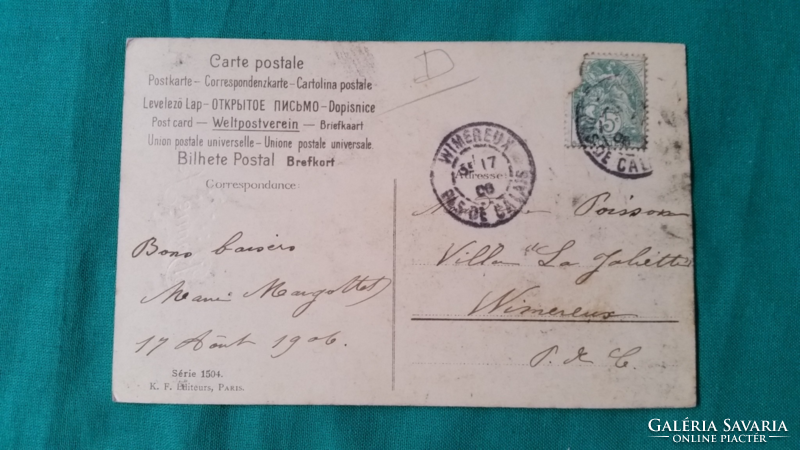 Carte postale
Postkarte – Correspondenzkarte – Cartolina postale
Levelező Lap – ОТКРЫТОЕ ПИСЬМО – Dopisnice
Post card – Weltpostverein – Briefkaart
Union postale universelle – Unione postale universale.
Bilhete Postal Brefkort
Correspondance
D
Bons baisers
Marie Margottet
17 Août 1906.
Série 1504.
K. F. Editeurs, Paris.
WIMEREUX
17
06
PAS-DE-CALAIS
5
DE CAL
Adresse
Poisson
Villa "La Joliette"
Wimereux
P. de C.
GALÉRIA SAVARIA
ONLINE PIACTÉR